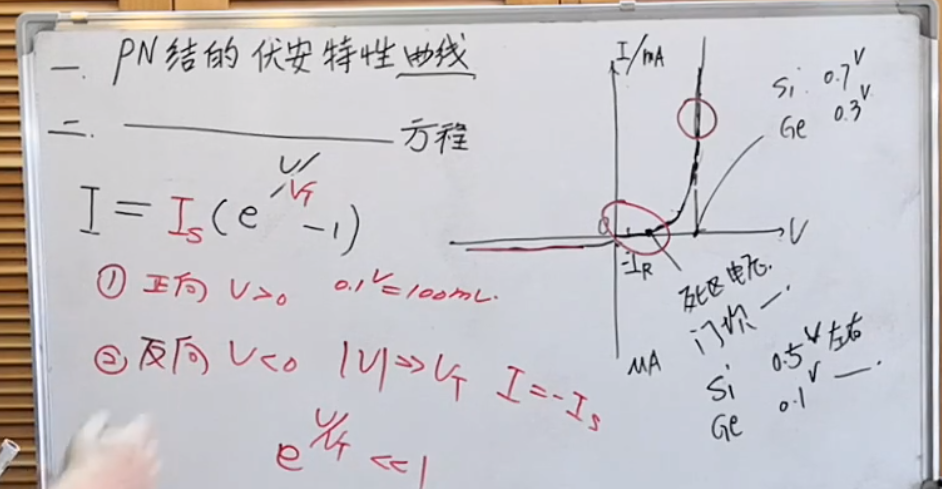 一. PN结的伏安特性曲线
二. ————— 方程
I = Is(e^{U/UT} -1)
① 正向 U>0 0.1V=100mL.
② 反向 U<0 |U|>>UT I=-Is
e^{U/UT} <<1
I/mA
Si 0.7V
Ge 0.3V
0
U
-IR
死区电压.
门坎 —.
μA
Si 0.5V左右
Ge 0.1V —.